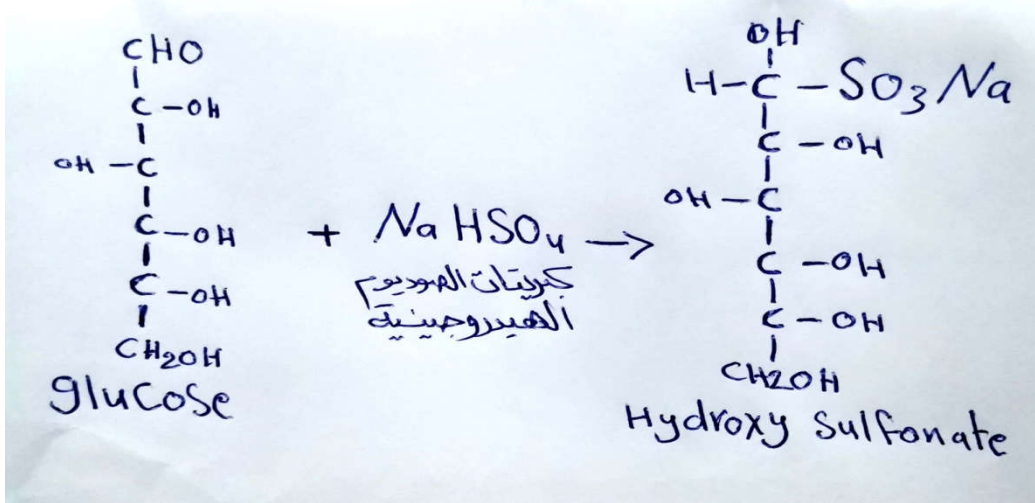 CHO
C-OH
OH-C
C-OH
C-OH
CH2OH
glucose
+ NaHSO4 →
كبريتات الصوديوم
الهيدروجينية
OH
H-C-SO3Na
C-OH
OH-C
C-OH
C-OH
CH2OH
Hydroxy sulfonate